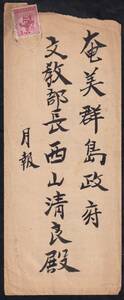 奄美群島政府
文教部長西山清良殿
月報